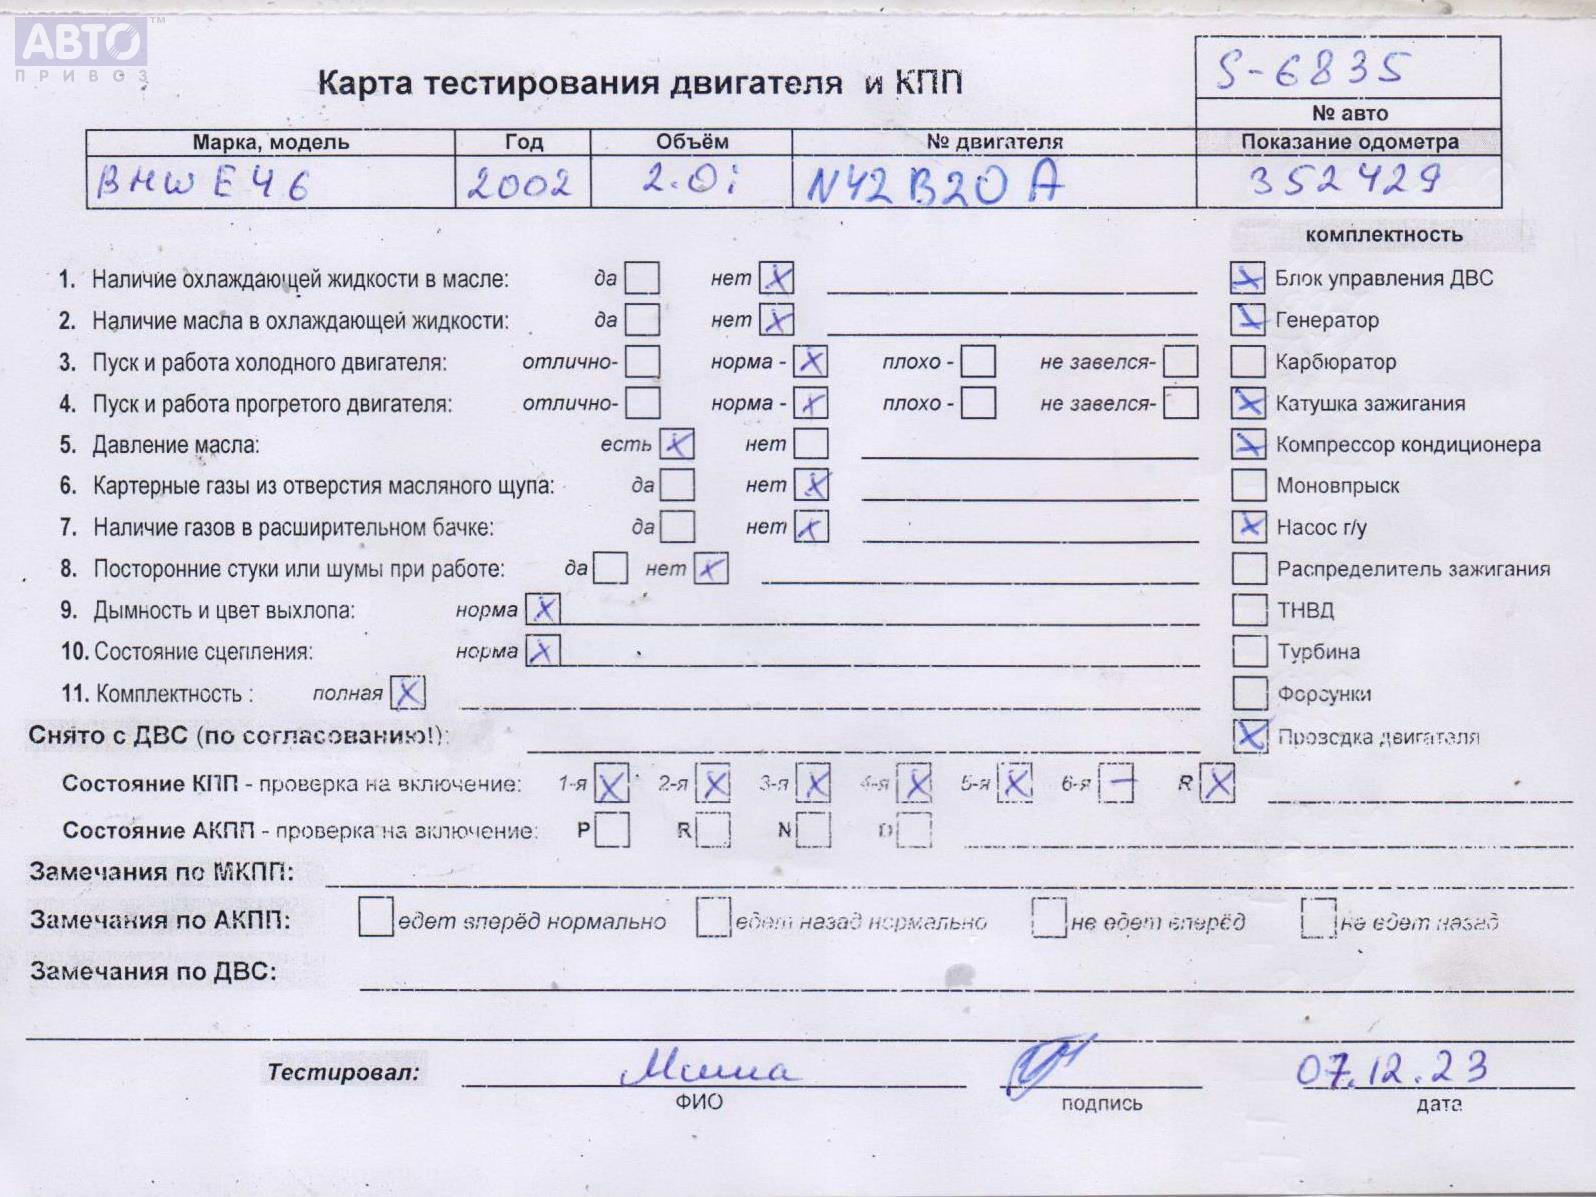 АВТО™
ПРИВОЗ
Карта тестирования двигателя и КПП
S-6835
№ авто
Марка, модель Год Объём № двигателя Показание одометра
BMW E46 2002 2.0i N42B20A 352429
комплектность
1. Наличие охлаждающей жидкости в масле: да нет X Блок управления ДВС
2. Наличие масла в охлаждающей жидкости: да нет X Генератор
3. Пуск и работа холодного двигателя: отлично- норма - X плохо - не завелся- Карбюратор
4. Пуск и работа прогретого двигателя: отлично- норма - X плохо - не завелся- Катушка зажигания
5. Давление масла: есть X нет Компрессор кондиционера
6. Картерные газы из отверстия масляного щупа: да нет X Моновпрыск
7. Наличие газов в расширительном бачке: да нет X Насос г/у
8. Посторонние стуки или шумы при работе: да нет X Распределитель зажигания
9. Дымность и цвет выхлопа: норма X ТНВД
10. Состояние сцепления: норма X Турбина
11. Комплектность : полная X Форсунки
Снято с ДВС (по согласованию!): Проводка двигателя
Состояние КПП - проверка на включение: 1-я X 2-я X 3-я X 4-я X 5-я X 6-я - R X
Состояние АКПП - проверка на включение: P R N D
Замечания по МКПП:
Замечания по АКПП: едет вперёд нормально едет назад нормально не едет вперёд не едет назад
Замечания по ДВС:
Тестировал: Миша 07.12.23
ФИО подпись дата